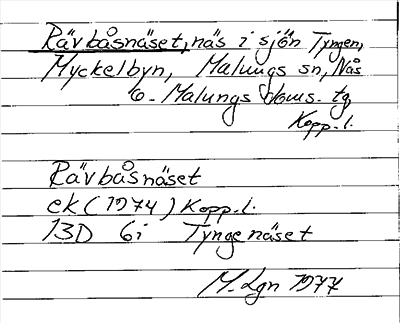 Rävbåsnäset, näs i sjön Tyngen,
Myckelbyn, Malungs sn, Nås
o. Malungs doms. tg
Kopp. l.
Rävbåsnäset
ek (1974) Kopp. l.
13D 6i Tyngenäset
M. Lgn 1977